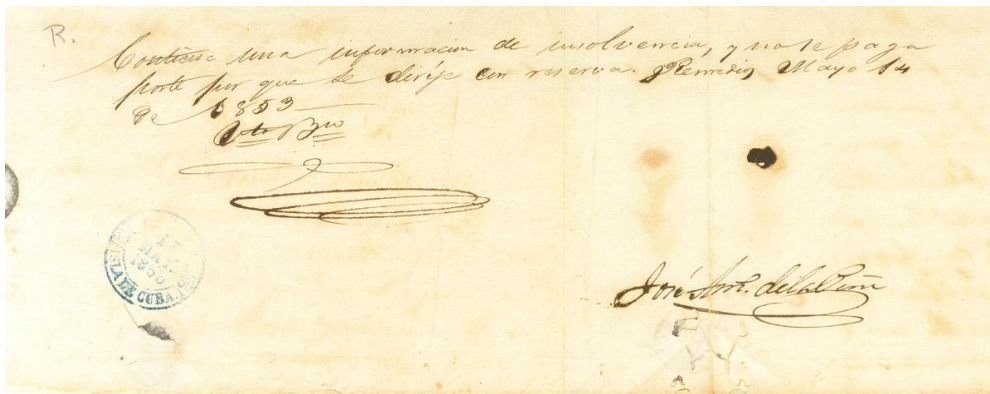 R.
Contiene una informacion de insolvencia, y no se paga
porte por que se dirije con reserva. Remedios Mayo 14
de 1853
Vto Bno
17
MAY.
1853
ISLA DE CUBA.
José Anto. de la Peña